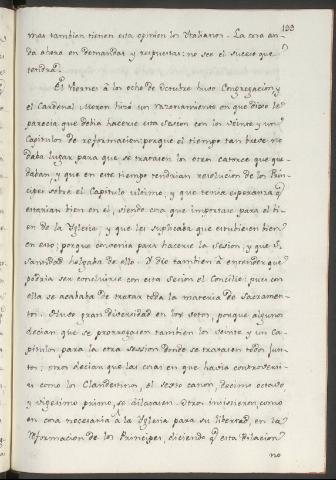 199
mas tambien tienen esta opinion los Italianos. La cosa an-
da ahora en demandas y respuestas: no se el suceso que
tendrá.
El Viernes á los ocho de Octubre huvo Congregacion, y
el Cardenal Moron hizo un razonamiento en que dijo le
parecia que debia hacerse esta sesion con los veinte y un
Capitulos de reformacion; porque el tiempo tan breve no
daba lugar para que se tratasen los otros catorce que que-
daban, y que en este tiempo tendrian resolucion de los Prin-
cipes sobre el Capitulo ultimo, y que tenia esperanza q.
estarian bien en el, siendo cosa que importase para el bi-
en de la Yglesia, y que les suplicaba que estubiesen bien
en esto; porque convenia para hacerse la sesion, y que S.
Sanidad holgaba de ello. Y dio tambien á entender que
podria ser concluirse con esta sesion el Concilio; pues con
ella se acababa de tratar toda la materia de Sacramen-
tos. Huvo gran diversidad en los votos, porque algunos
decian que se prorrogasen tambien los veinte y un Ca-
pitulos para la otra session donde se tratasen todos Jun-
tos; otros decian que las cosas en que havia controversi-
as como los Clandestinos, el sesto canon, decimo octavo,
y vigesimo primo, se dilatasen. Otros insistieron, como
en cosa necesaria á la Yglesia para su libertad, en la
reformacion de los Principes, diciendo q. esta dilacion
no